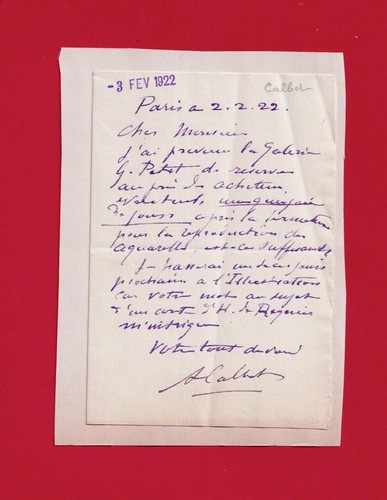 - 3 FEV 1922
Calbet
Paris a 2.2.22.
Cher Monsieur
J'ai prevenu la Galerie
G. Petit de reserver
auprès des acheteurs
eventuels une quinzaine
de jours après la
pour la reproduction des
aquarelles, est-ce suffisant?
Je passerai un de ces jours
prochains a l'Illustration
car votre mot au sujet
d'un conte d'H. de Regnier
m'intrigue
Votre tout devoué
A Calbet